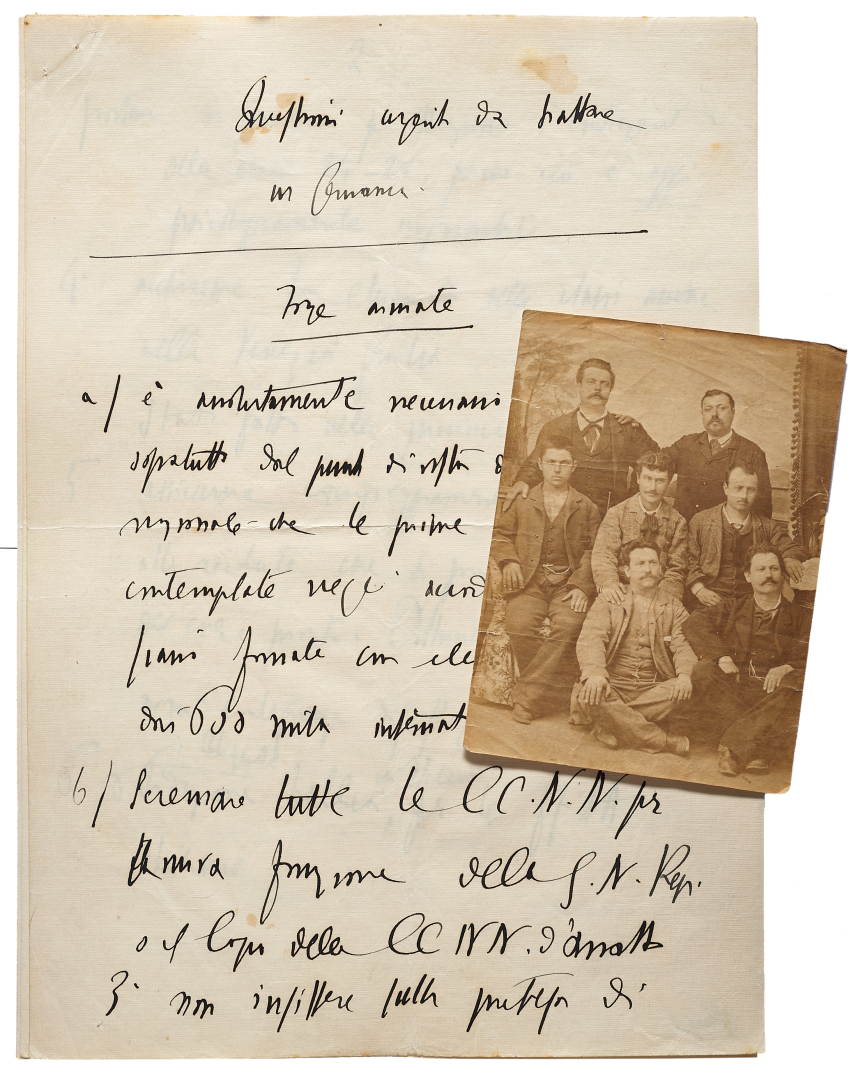 Questioni urgenti da trattare
in Germania.
Forze armate
a/ è assolutamente necessario
sopratutto dal punto di vista
nazionale - che le prime
contemplate negli
siano formate con ele
dei 600 mila internat
b/ Richiamare tutte le CC.N.N. per
la nuova funzione della G.N. Rep.
o il Corpo delle CC NN. d'assalto
3° non insistere sulla pretesa di